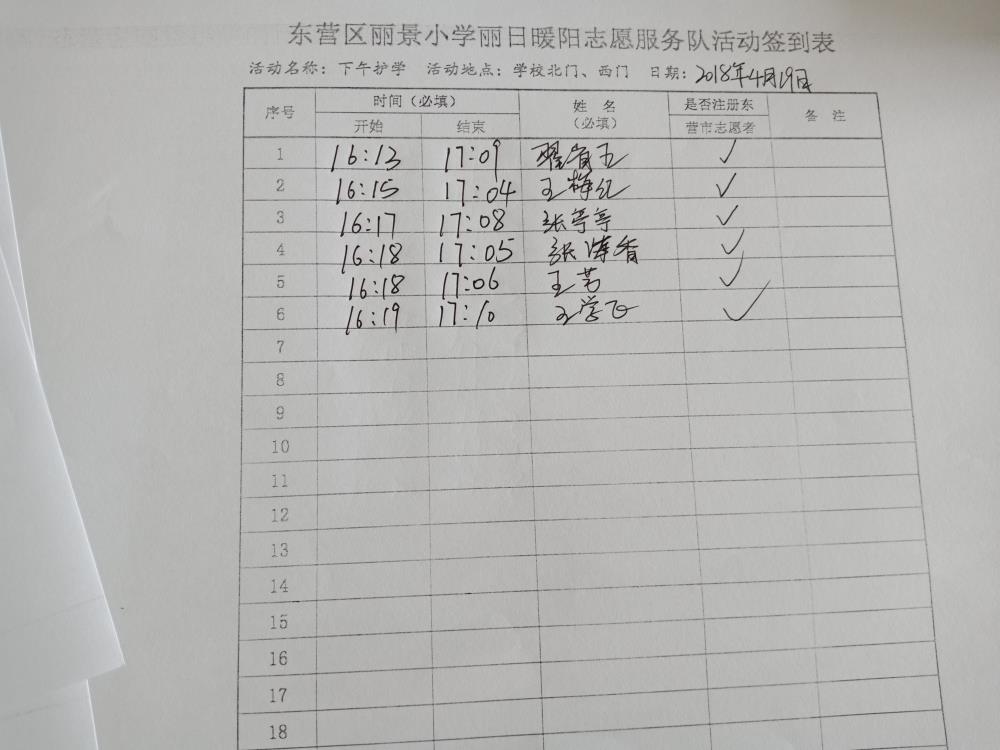 东营区丽景小学丽日暖阳志愿服务队活动签到表
活动名称：下午护学 活动地点：学校北门、西门 日期：2018年4月19日
序号 时间（必填） 姓 名（必填） 是否注册东营市志愿者 备 注
开始 结束
1 16:13 17:09 ✓
2 16:15 17:04 王梅红 ✓
3 16:17 17:08 张亭亭 ✓
4 16:18 17:05 张涛香 ✓
5 16:18 17:06 王芳 ✓
6 16:19 17:10 王学飞 ✓
7
8
9
10
11
12
13
14
15
16
17
18